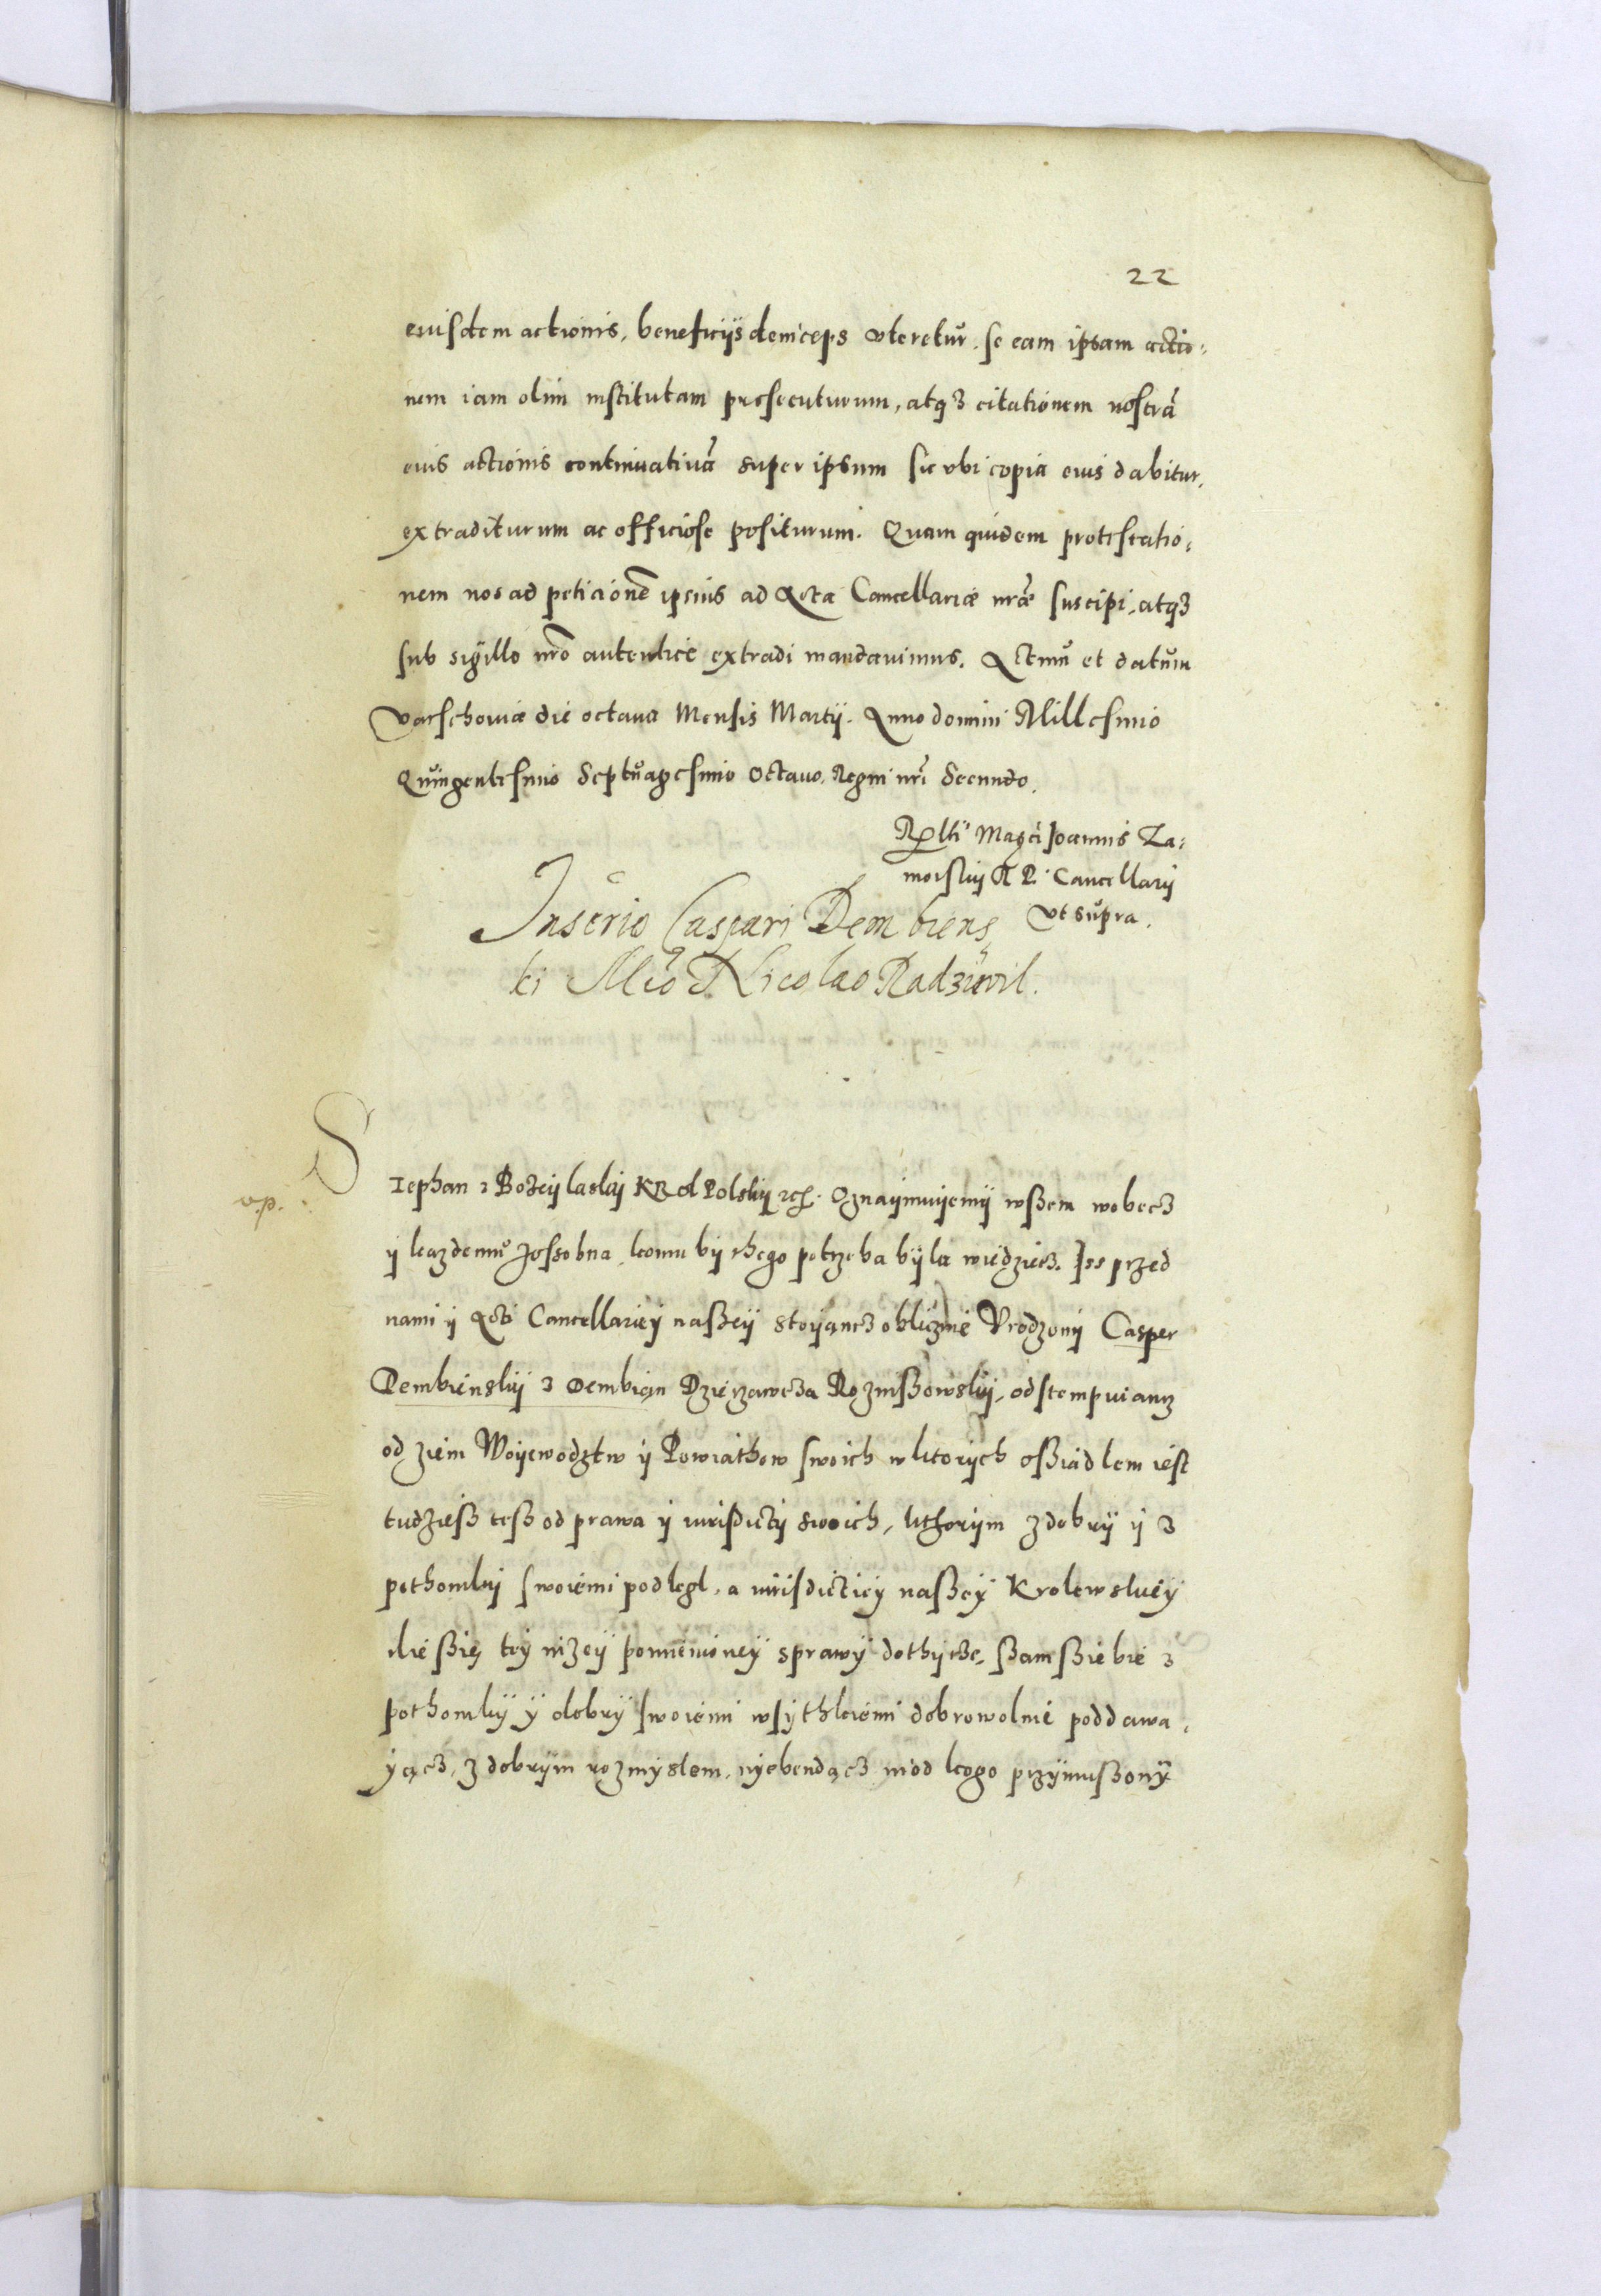 22
eiusdem actionis, beneficijs deinceps vteretur. se eam ipsam actio-
nem iam olim institutam prosecuturum, atq3 citationem nostrã
eius actionis continuatiuã super ipsum sic vbi copia eius dabitur,
extraditurum ac officiose positurum. Quam quidem protestatio-
nem nos ad peticionẽ ipsius ad Acta Cancellariæ nr̃æ suscipi, atq3
sub sigillo nr̃o autentice extradi mandauimus. Actum et datum
Varschowiæ die octaua Mensis Martij. Anno domini Millesimo
Quingentesimo Septuagesimo Octauo. Regni nr̃i Secundo.
Rel̃tı Magci Joannis Za-
moiskij R P. Cancellarij
Vt supra.
Inscrio Caspari Dembiens
ki Mco D Nicolao Radziwil.
v.p.
Stephan z Bożeij laskij KRol Polskij etc. Oznaijmuijemij wßem wobecz
ij kazdemu zossobna, komu bij thego potrzeba bijla wiedziecz. Iss przed
nami ij Acti Cancellarieij naßeij stoijancz oblicznie Vrodzonij Casper
Dembienskij z Dembian Dzierzawcza Rozmßowskij, odstempuiancz
od ziem Woijewodztw ij Powiathow swoich w ktorijch oßiadlem iest
tudzieß teß od prawa ij iurisdictij swoich, kthorijm z dobrij ij z
pothomkij swoiemi podlegl, a iurisdictieij naßeij Krolewskieij
ile ßię teij niżeij pomienioneij sprawij dothijcze, ßam ßiebie z
pothomkij ij dobrij swoiemi wsijthkiemi dobrowolnie poddawa-
ijącz, z dobrijm rozmijslem, nijebendącz niod kogo przijmußonij